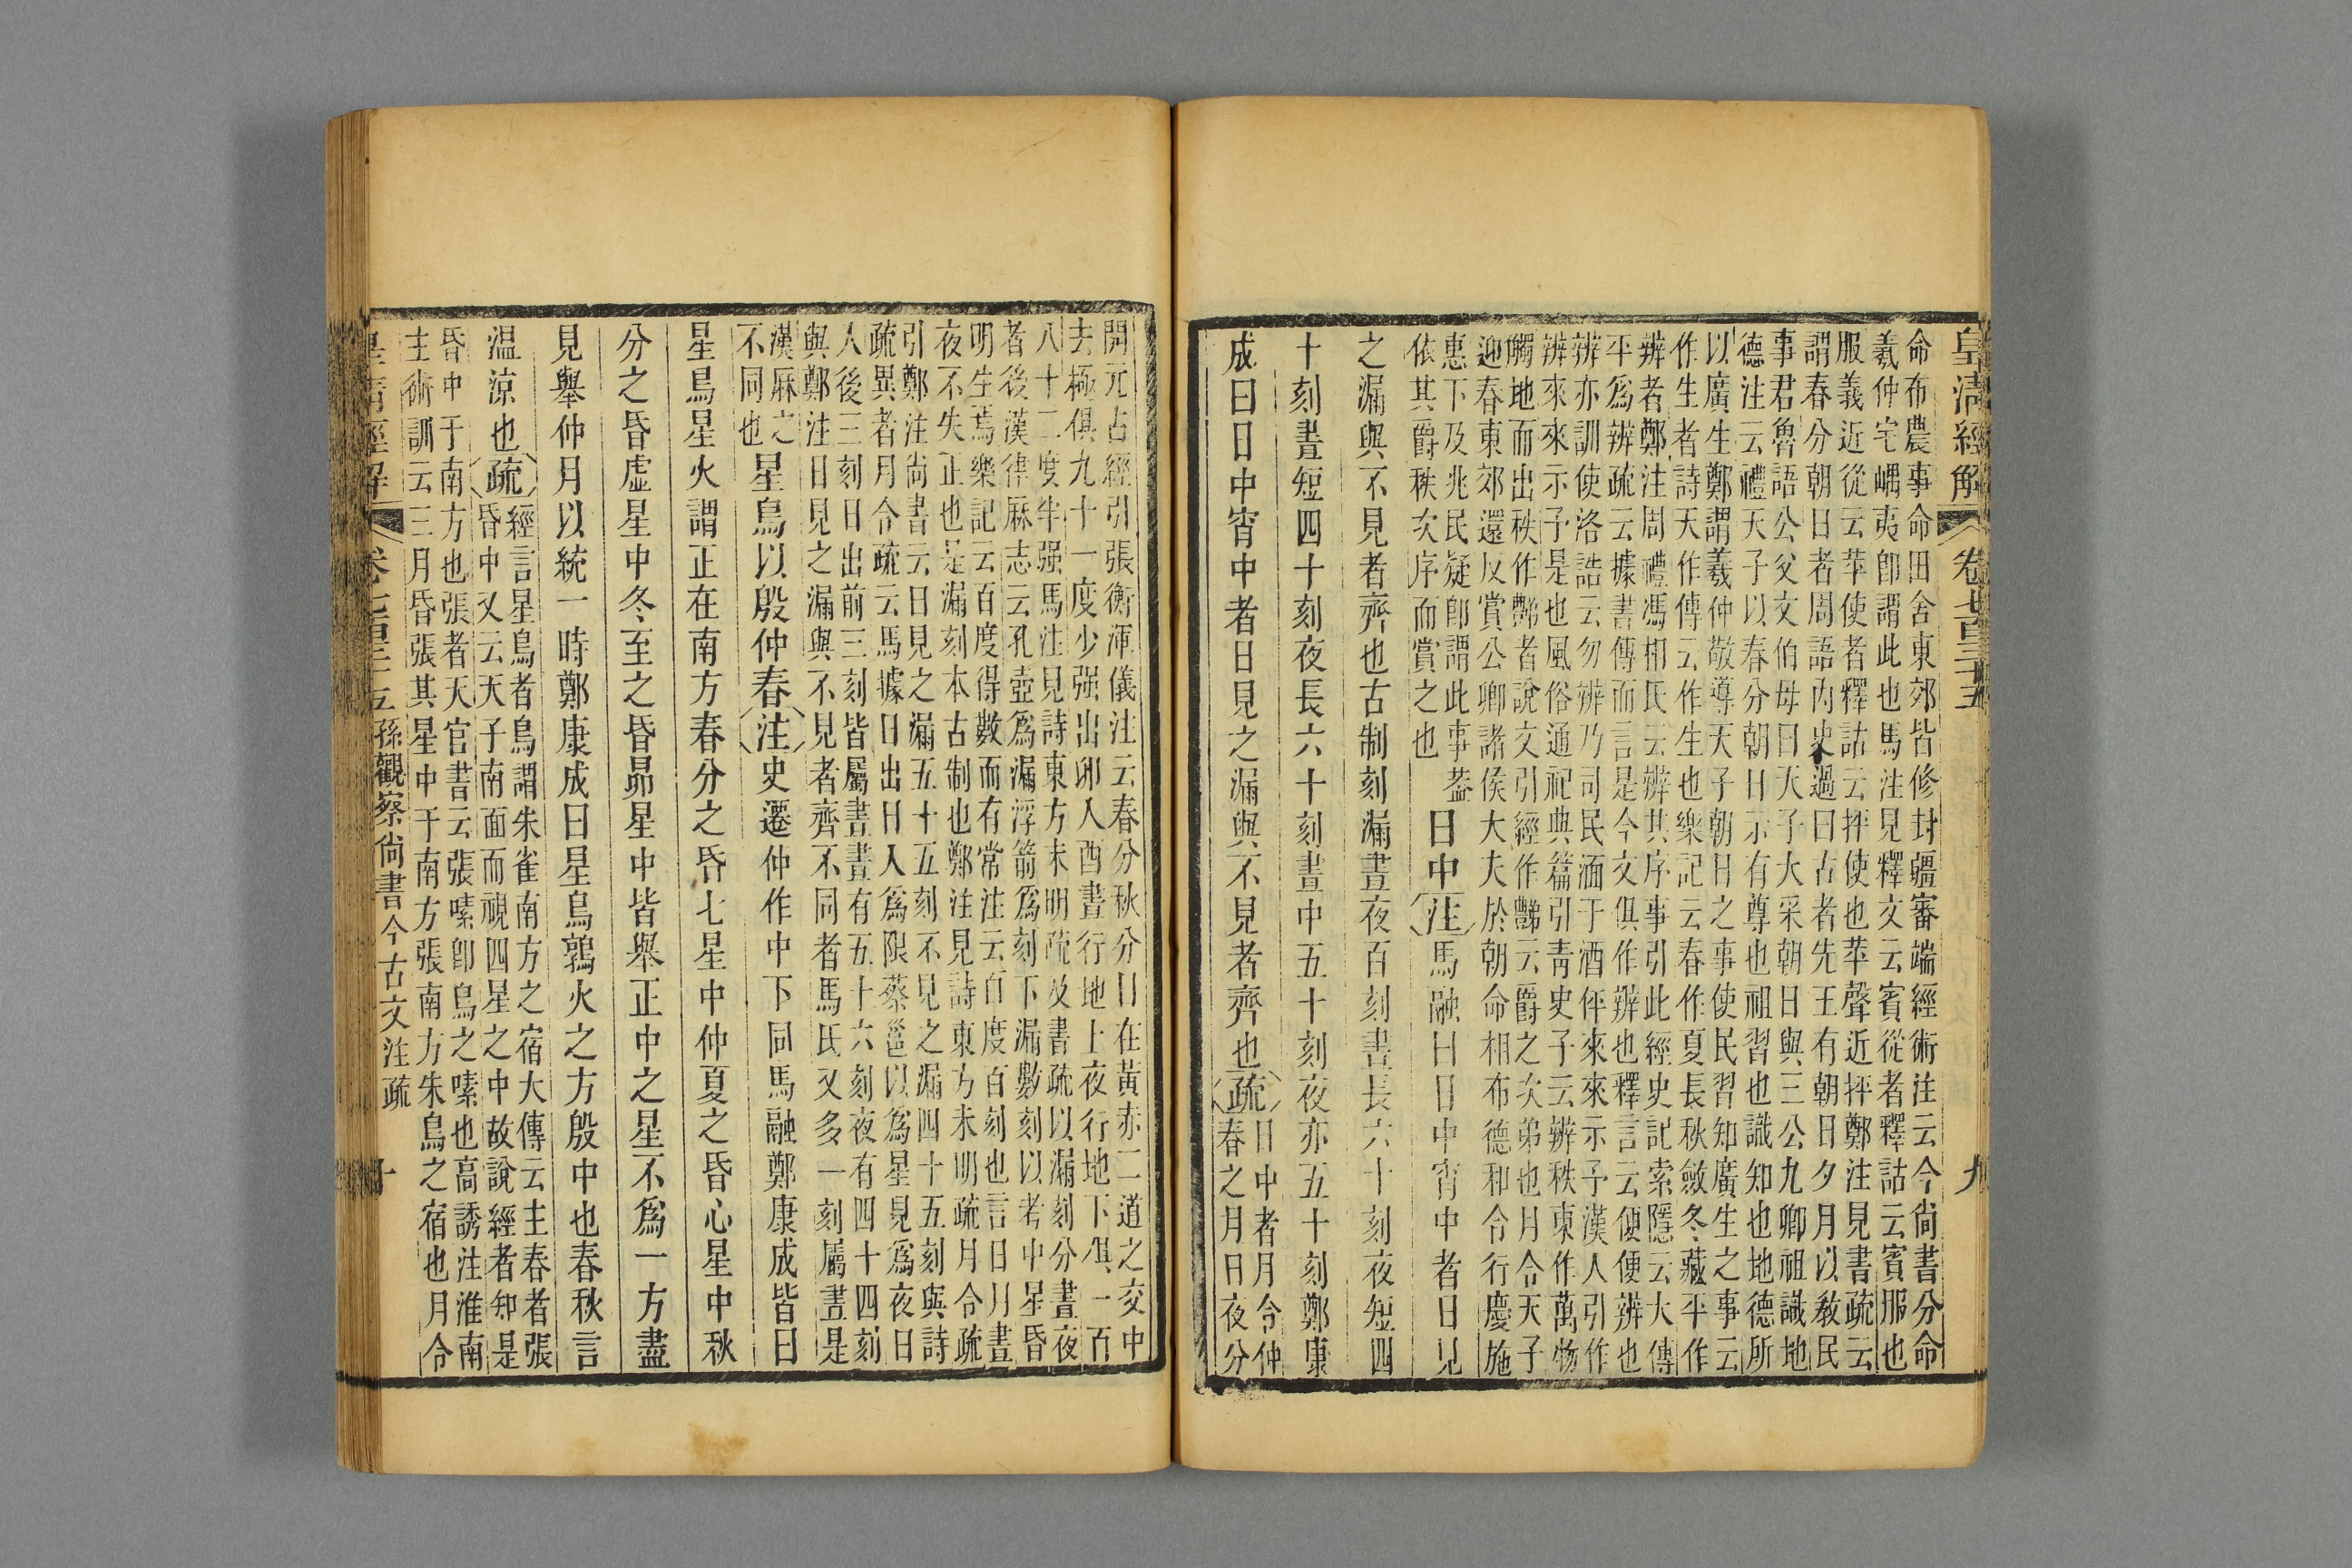 皇清經解 卷七百三十五 九
命布農事命田舍東郊皆修封疆審端經術注云今尙書分命
羲仲宅嵎夷卽謂此也馬注見釋文云賓從者釋詁云賓服也
服義近從云苹使者釋詁云抨使也苹聲近抨鄭注見書疏云
謂春分朝日者周語內史過曰古者先王有朝日夕月以敎民
事君魯語公父文伯母曰天子大采朝日與三公九卿祖識地
德注云禮天子以春分朝日示有尊也祖習也識知也地德所
以廣生鄭謂羲仲敬導天子朝日之事使民習知廣生之事云
作生者詩天作傳云作生也樂記云春作夏長秋斂冬藏平作
辨者鄭注周禮馮相氏云辨其序事引此經史記索隱云大傳
平爲辨疏云據書傳而言是今文俱作辨也釋言云便便辨也
辨亦訓使洛誥云勿辨乃司民湎于酒伻來來示予漢人引作
辨來來示予是也風俗通祀典篇引靑史子云辨秩東作萬物
觸地而出秩作豑者說文引經作豑云爵之次弟也月令天子
迎春東郊還反賞公卿諸侯大夫於朝命相布德和令行慶施
惠下及兆民疑卽謂此事葢
依其爵秩次序而賞之也
日中注馬融曰日中宵中者日見
之漏與不見者齊也古制刻漏晝夜百刻晝長六十刻夜短四
十刻晝短四十刻夜長六十刻晝中五十刻夜亦五十刻鄭康
成曰日中宵中者日見之漏與不見者齊也疏
日中者月令仲
春之月日夜分
開元占經引張衡渾儀注云春分秋分日在黃赤二道之交中
去極俱九十一度少强出卯入酉晝行地上夜行地下俱一百
八十二度半强馬注見詩東方未明疏及書疏以漏刻分晝夜
者後漢律厤志云孔壺爲漏浮箭爲刻下漏數刻以考中星昏
明生焉樂記云百度得數而有常注云百度百刻也言日月晝
夜不失正也是漏刻本古制也鄭注見詩東方未明疏月令疏
引鄭注尙書云日見之漏五十五刻不見之漏四十五刻與詩
疏異者月令疏云馬據日出日入爲限蔡邕以爲星見爲夜日
入後三刻日出前三刻皆屬晝晝有五十六刻夜有四十四刻
與鄭注日見之漏與不見者齊不同者馬氏又多一刻屬晝是
漢厤之
不同也
星鳥以殷仲春注史遷仲作中下同馬融鄭康成皆曰
星鳥星火謂正在南方春分之昏七星中仲夏之昏心星中秋
分之昏虛星中冬至之昏昴星中皆舉正中之星不爲一方盡
見舉仲月以統一時鄭康成曰星鳥鶉火之方殷中也春秋言
温涼也疏
經言星鳥者鳥謂朱雀南方之宿大傳云主春者張
昏中又云天子南面而視四星之中故說經者知是
昏中于南方也張者天官書云張嗉卽鳥之嗉也高誘注淮南
主術訓云三月昏張其星中于南方張南方朱鳥之宿也月令
皇淸經解 卷七百三十五 孫觀察尙書今古文注疏 十